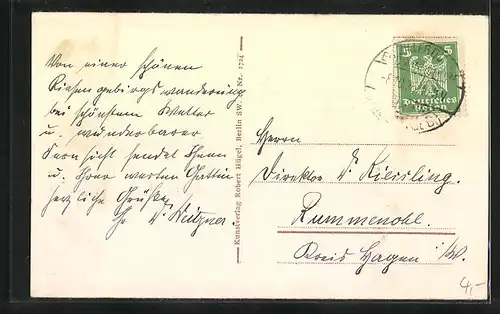 Von einer schönen
Riesengebirgswanderung
bei schönstem Wetter
u. wunderbarer
Fernsicht sendet Ihnen
u. Ihrer werten Gattin
herzliche Grüße
Ihr
Kunstverlag Robert Hügel, Berlin SW. Nr. 1724
5
Deutsches
Reich
Herrn
Direktor Dr. Kiessling.
Rummenohl.
Kreis Hagen i/W.
4,-